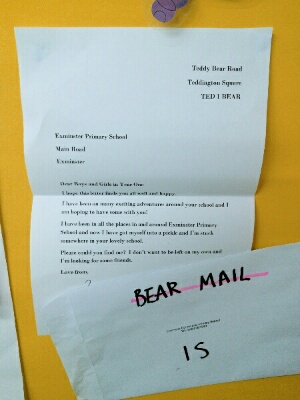 Teddy Bear Road
Teddington Square
TED 1 BEAR
Exminster Primary School
Main Road
Exminster
Dear Boys and Girls in Year One
I hope this letter finds you all well and happy.
I have been on many exciting adventures around your school and I
am hoping to have some with you!
I have been in all the places in and around Exminster Primary
School and now I have got myself into a pickle and I'm stuck
somewhere in your lovely school.
Please could you find me? I don't want to be left on my own and
I'm looking for some friends.
Love from,
?
BEAR MAIL
15